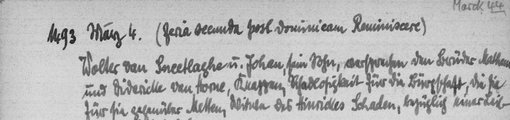 March 44
1493 März 4. (feria secunda post dominicam Reminiscere)
Wolter van Sneetlaghe u. Johan, sein Sohn, versprechen den Brüder
und Diderick van Horne, Knappen, Schadlosigkeit für die Bürgschaft, die sie
für sie gegenüber Metten, Witwe des Hinrickes Schaden, bezüglich einer